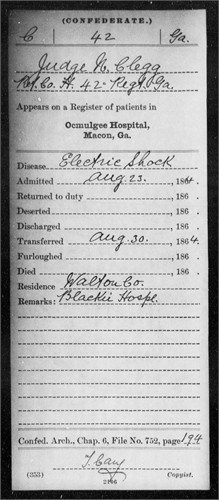 (CONFEDERATE.)
C 42 Ga.
Judge N. Clegg
Pvt. Co. H. 42 Regt. Ga.
Appears on a Register of patients in
Ocmulgee Hospital,
Macon, Ga.
Disease Electric Shock
Admitted Aug 23. , 1864.
Returned to duty , 186 .
Deserted , 186 .
Discharged , 186 .
Transferred Aug. 30. , 1864.
Furloughed , 186 .
Died , 186 .
Residence Walton Co.
Remarks: Blackie Hospl.
Confed. Arch., Chap. 6, File No. 752, page 194
(353) 2796 Copyist.